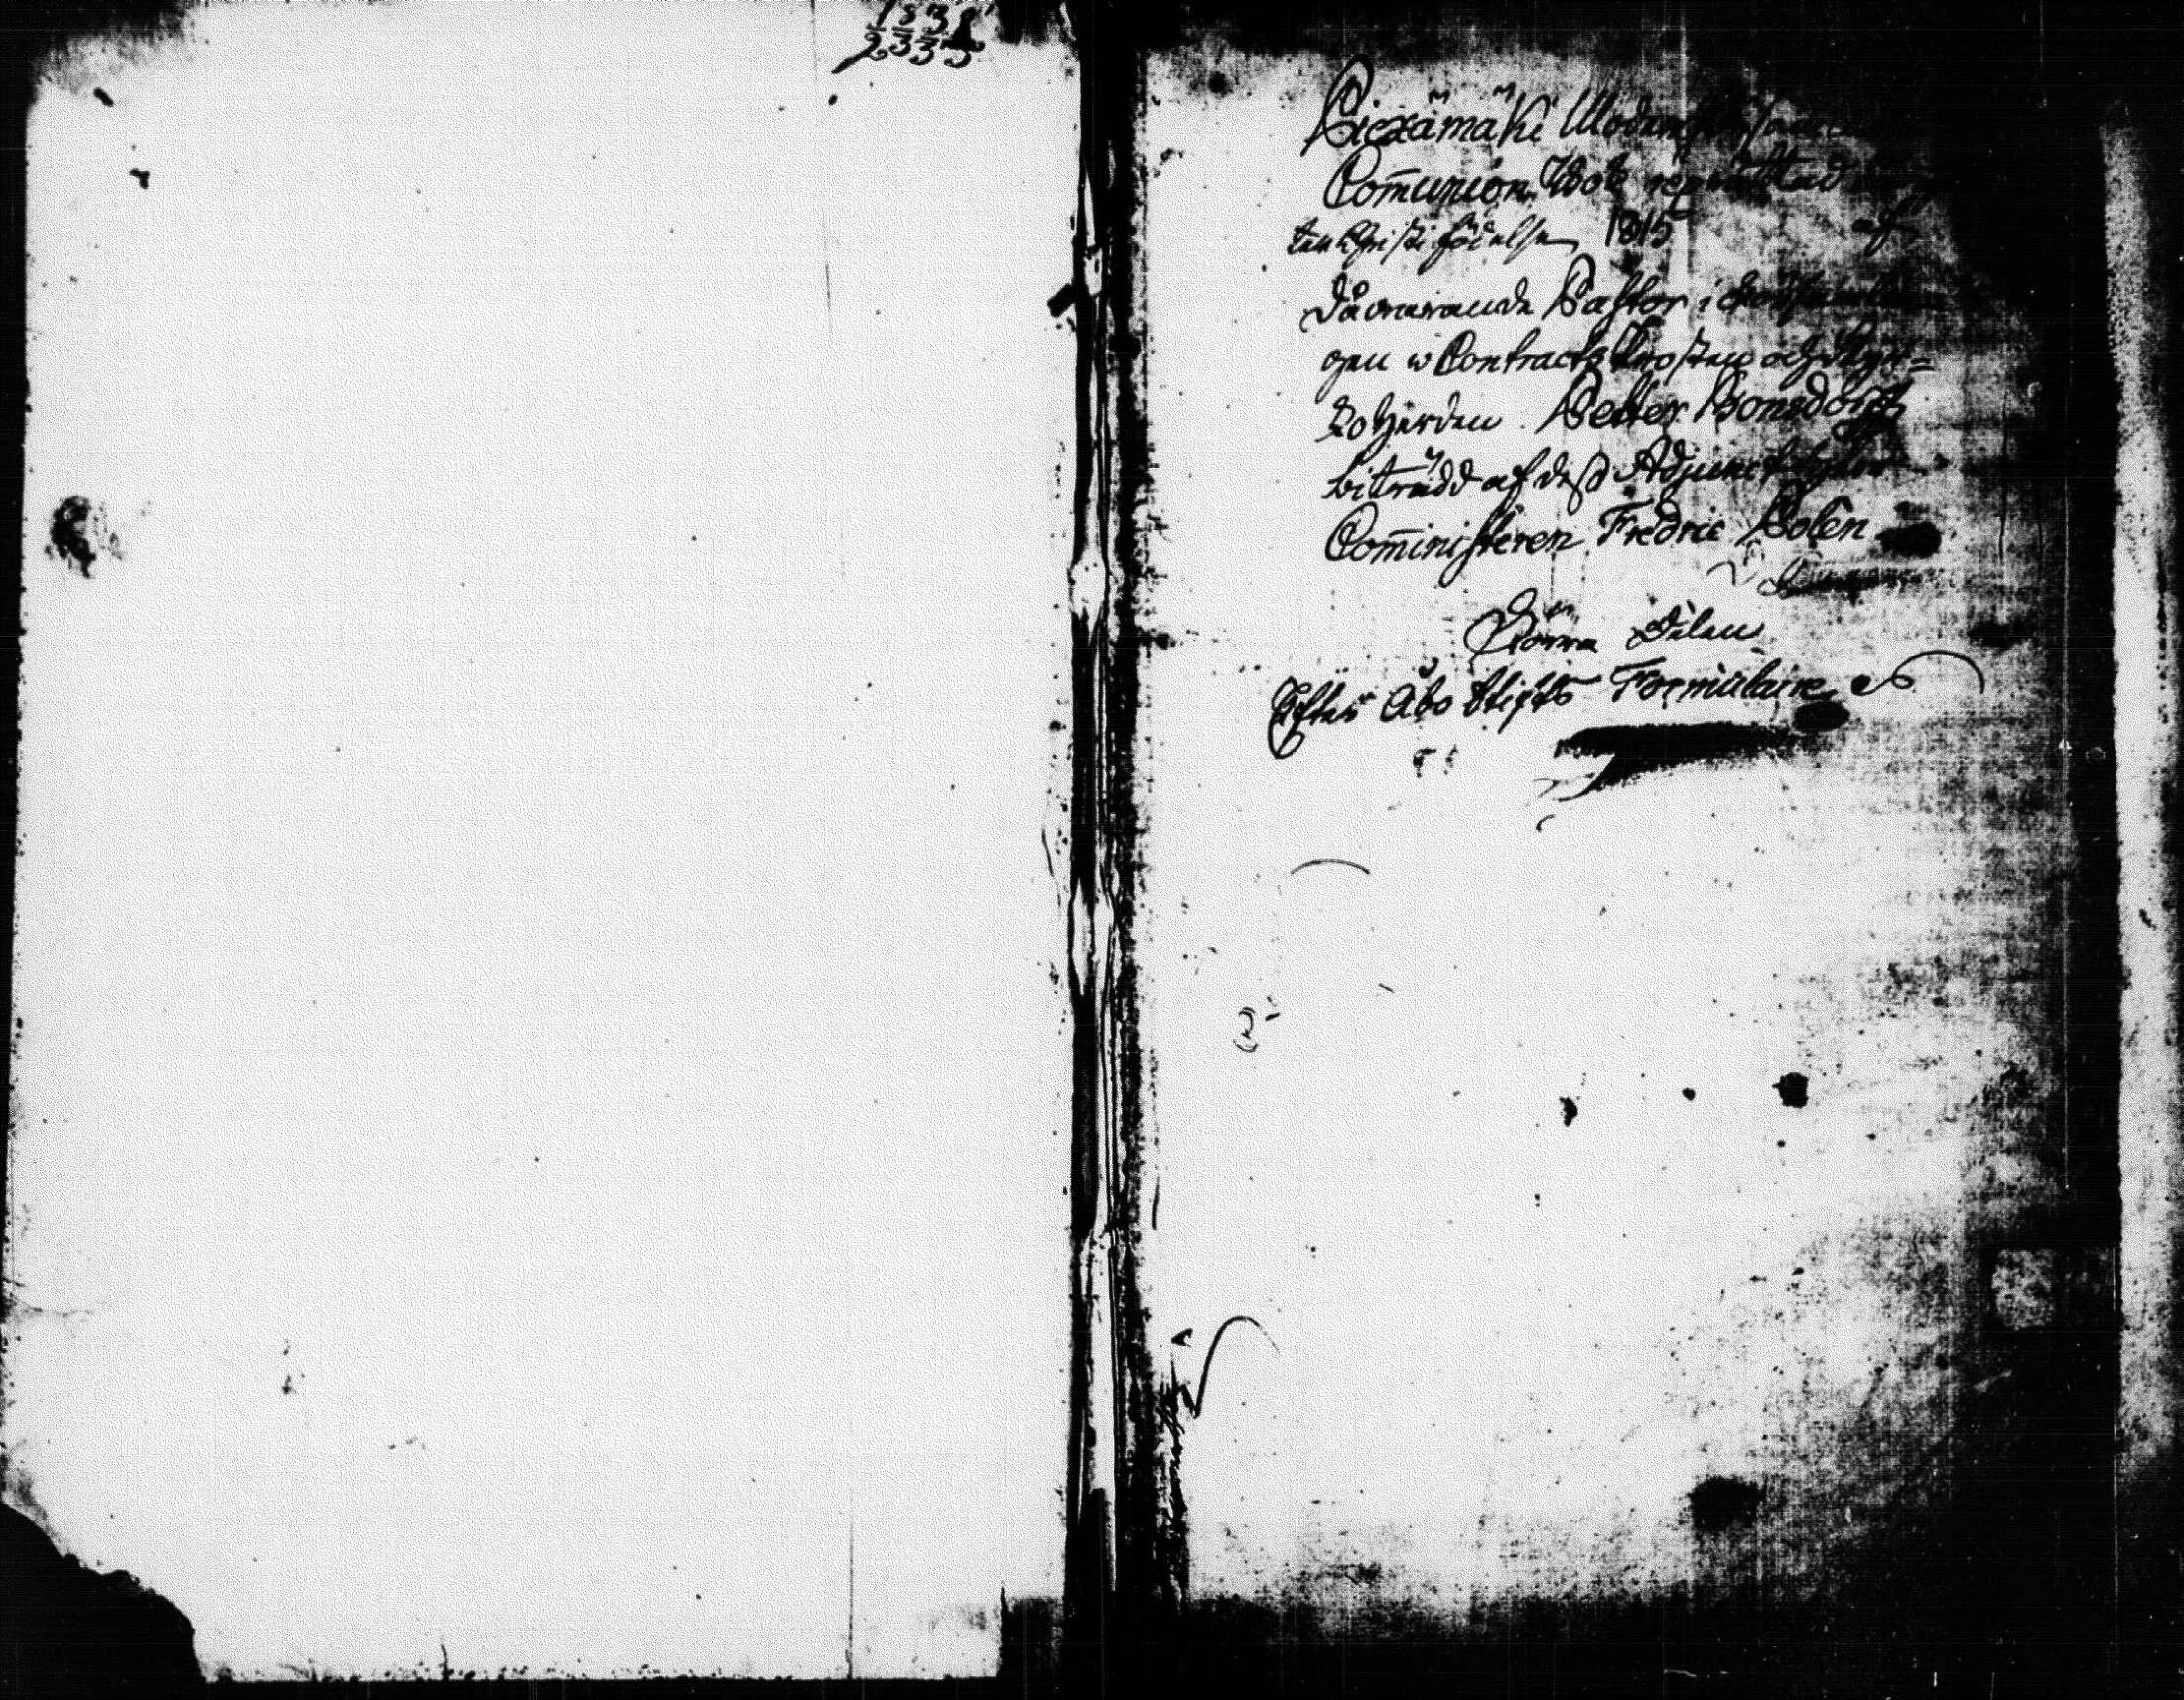 1838
2333
Piexämäki Moder
Com̄union Bok upprättad
ten Christi födelse 1815 af
då warande Pastor i
gen w Contracts Prosten och Kyr=
koherden Petter Bonsdorff
biträdd af dess Adjunct
Com̄inisteren Fredric Polén
Norra Delen
Efter Åbo Stifts Formulaire